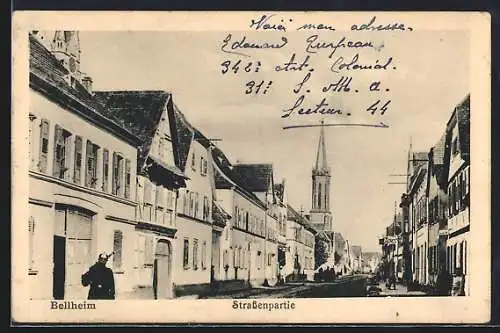 Voici mon adresse.
Edouard Turpeau
342e Art. Colonial.
31e S. M. a.
Secteur. 44
Bellheim
Straßenpartie